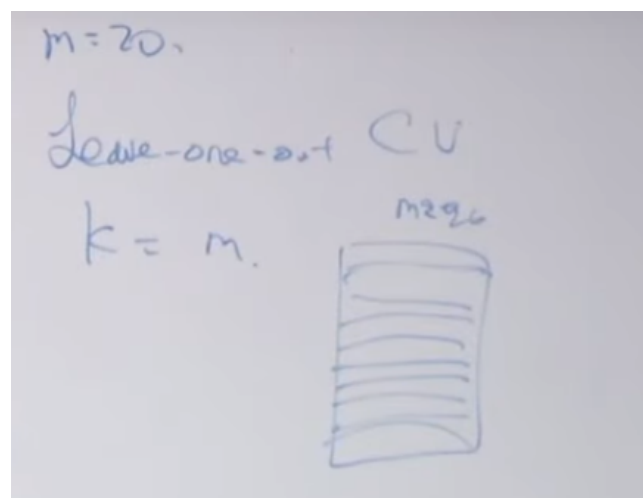 m=20.
Leave-one-out CV
k = m.